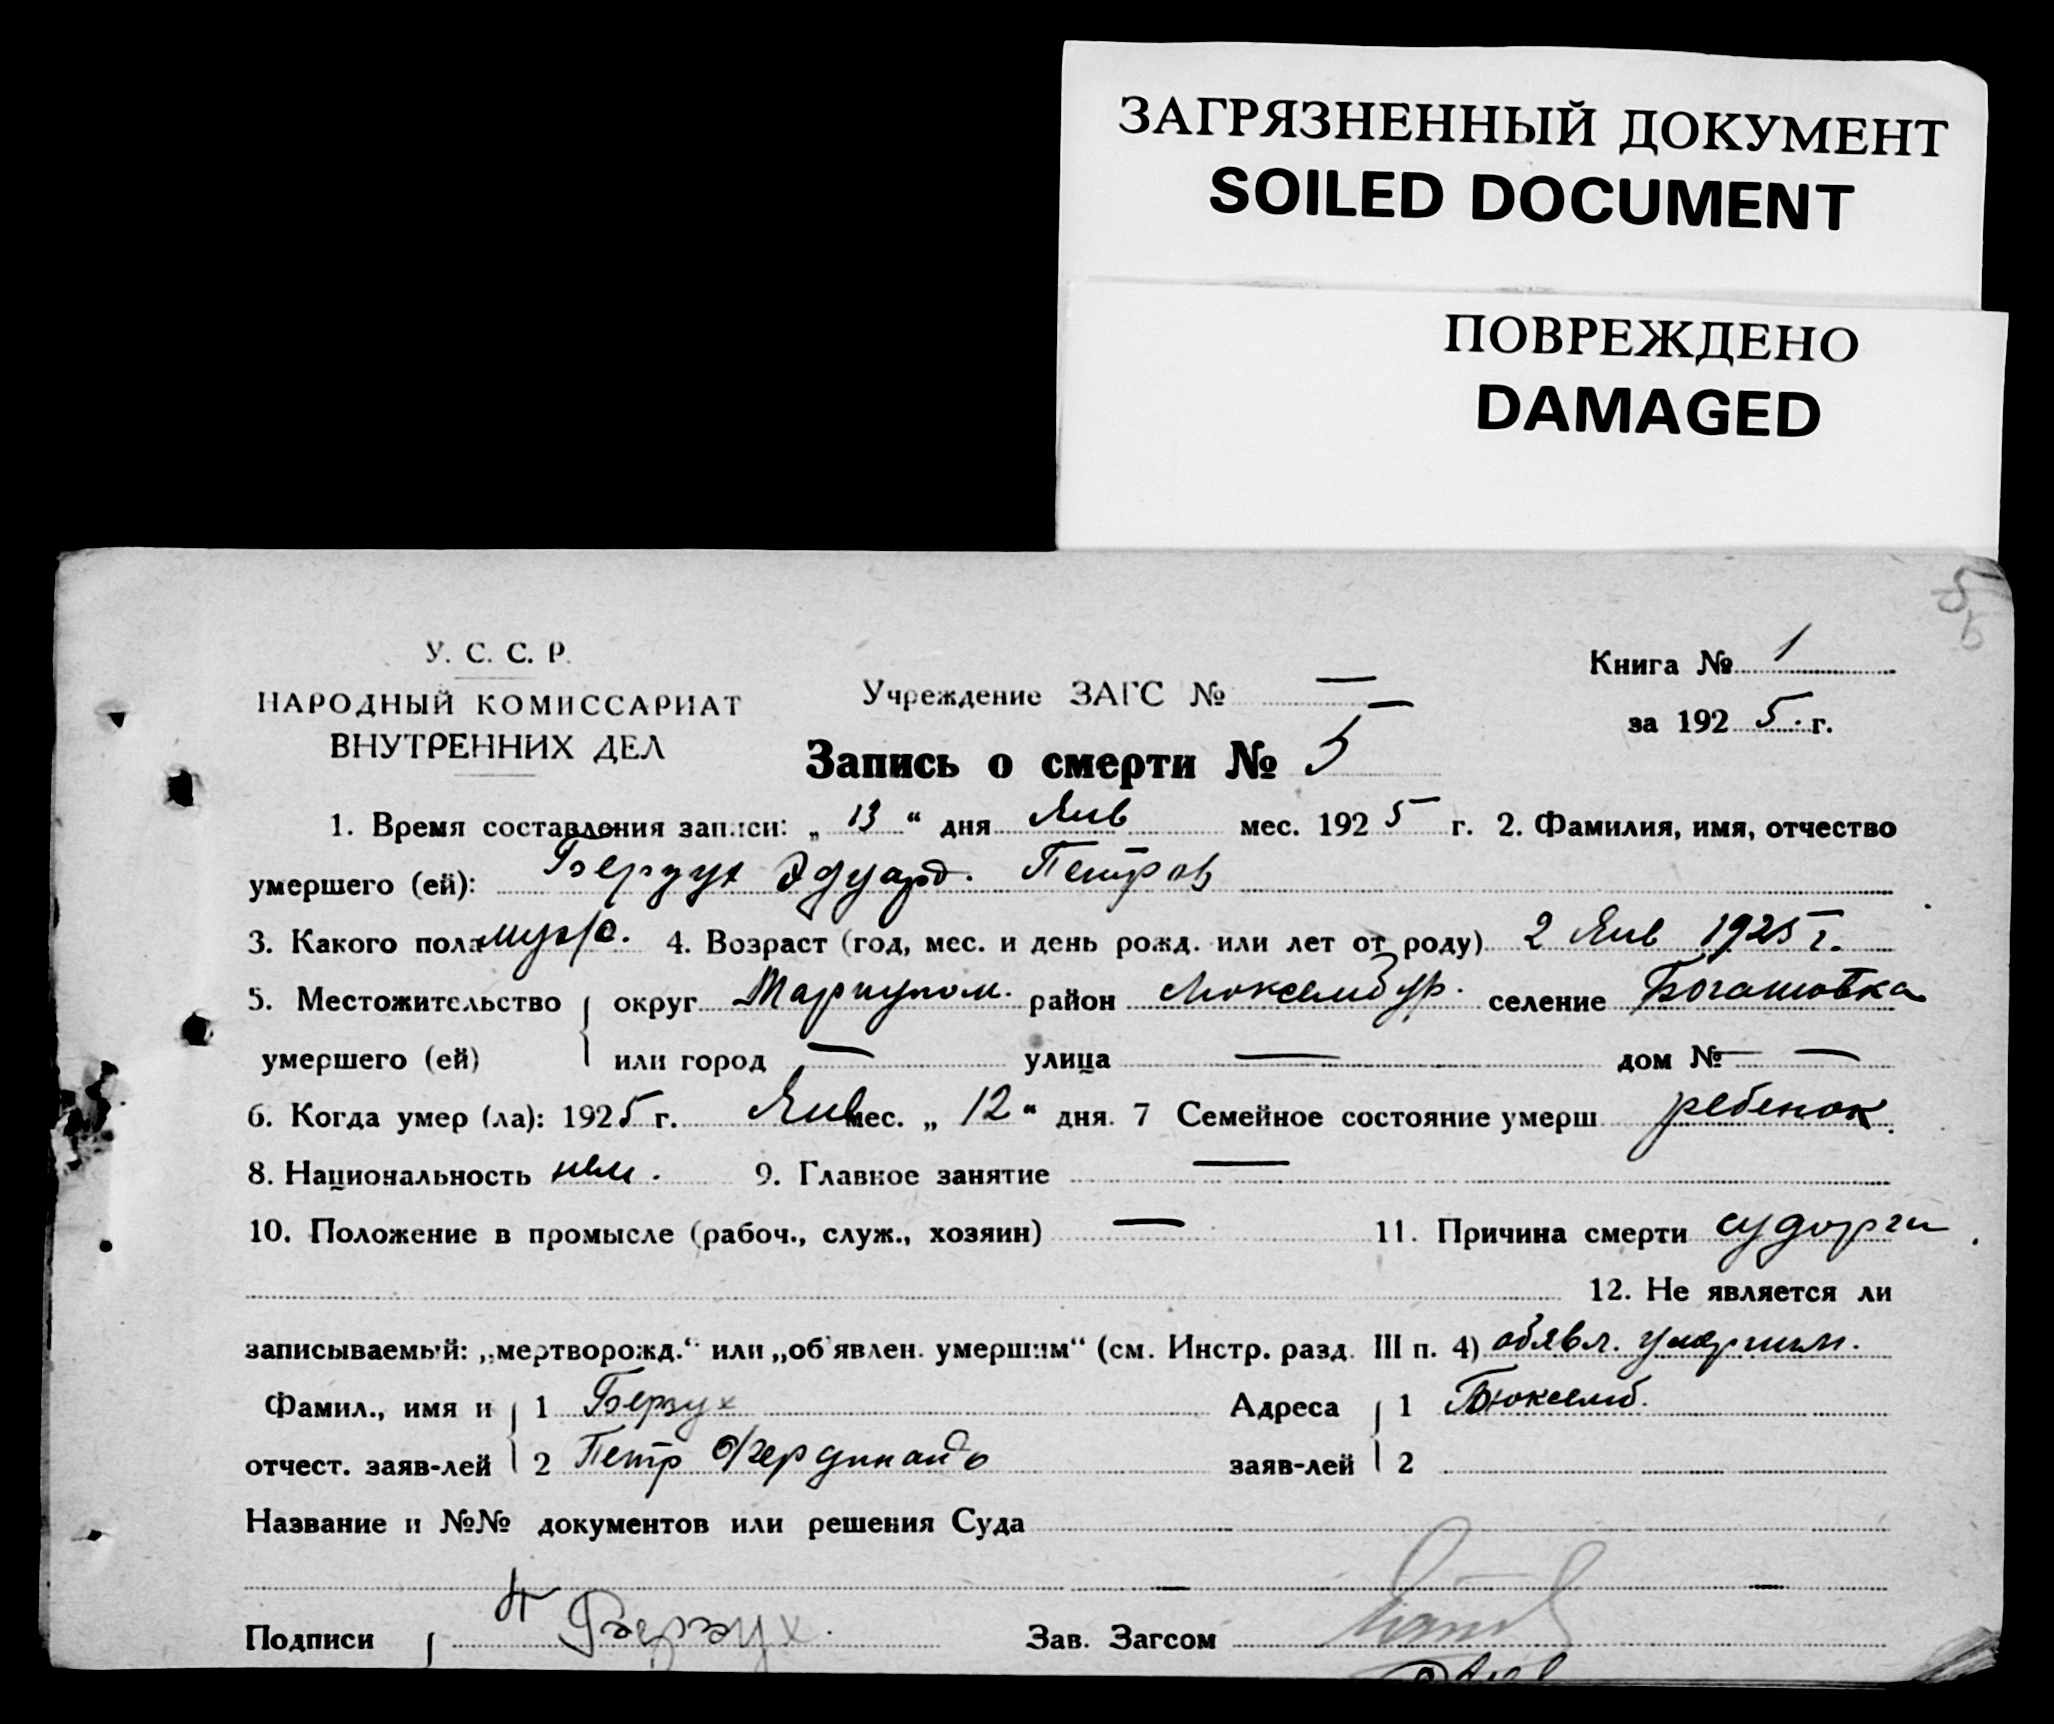 ЗАГРЯЗНЕННЫЙ ДОКУМЕНТ
SOILED DOCUMENT
ПОВРЕЖДЕНО
DAMAGED
У. С. С. Р.
НАРОДНЫЙ КОМИССАРИАТ
ВНУТРЕННИХ ДЕЛ
Учреждение ЗАГС № —
Книга № 1
за 192 5 г.
Запись о смерти № 5
1. Время составления записи: „ 13 “ дня Янв мес. 192 5 г. 2. Фамилия, имя, отчество
умершего (ей): Берзух Эдуард. Петров
3. Какого пола муж. 4. Возраст (год, мес. и день рожд. или лет от роду) 2 Янв 1925 г.
5. Местожительство округ Мариупол. район Люксембур. селение
умершего (ей) или город — улица — дом № —
6. Когда умер (ла): 192 5 г. Янв мес. „ 12 “ дня. 7 Семейное состояние умерш ребенок
8. Национальность нем. 9. Главное занятие —
10. Положение в промысле (рабоч., служ., хозяин) — 11. Причина смерти судорги
12. Не является ли
записываемый: „мертворожд.“ или „об'явлен. умершим“ (см. Инстр. разд. III п. 4) обявл. умершим.
Фамил., имя и 1 Берзух Адреса 1
отчест. заяв-лей 2 Петр заяв-лей 2
Название и №№ документов или решения Суда
Подписи Берзух. Зав. Загсом